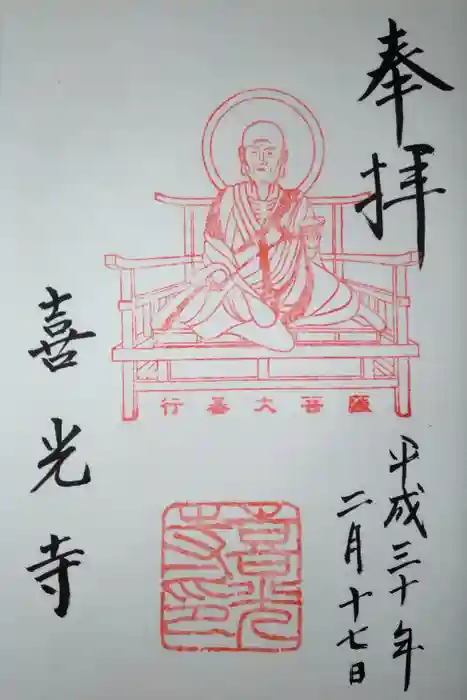 奉拝
平成三十年
二月十七日
行基大菩薩
喜光
寺印
喜光寺